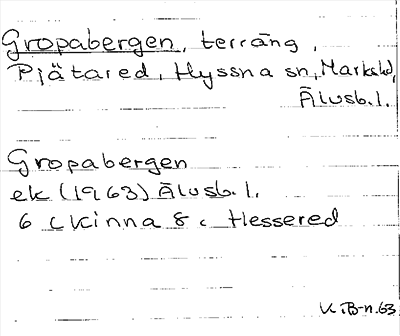 Gropabergen, terräng,
Pjätared, Hyssna sn, Marks hd,
Älvsb. l.
Gropabergen
ek (1963) Älvsb. l.
6 c Kinna 8 c Hessered
63